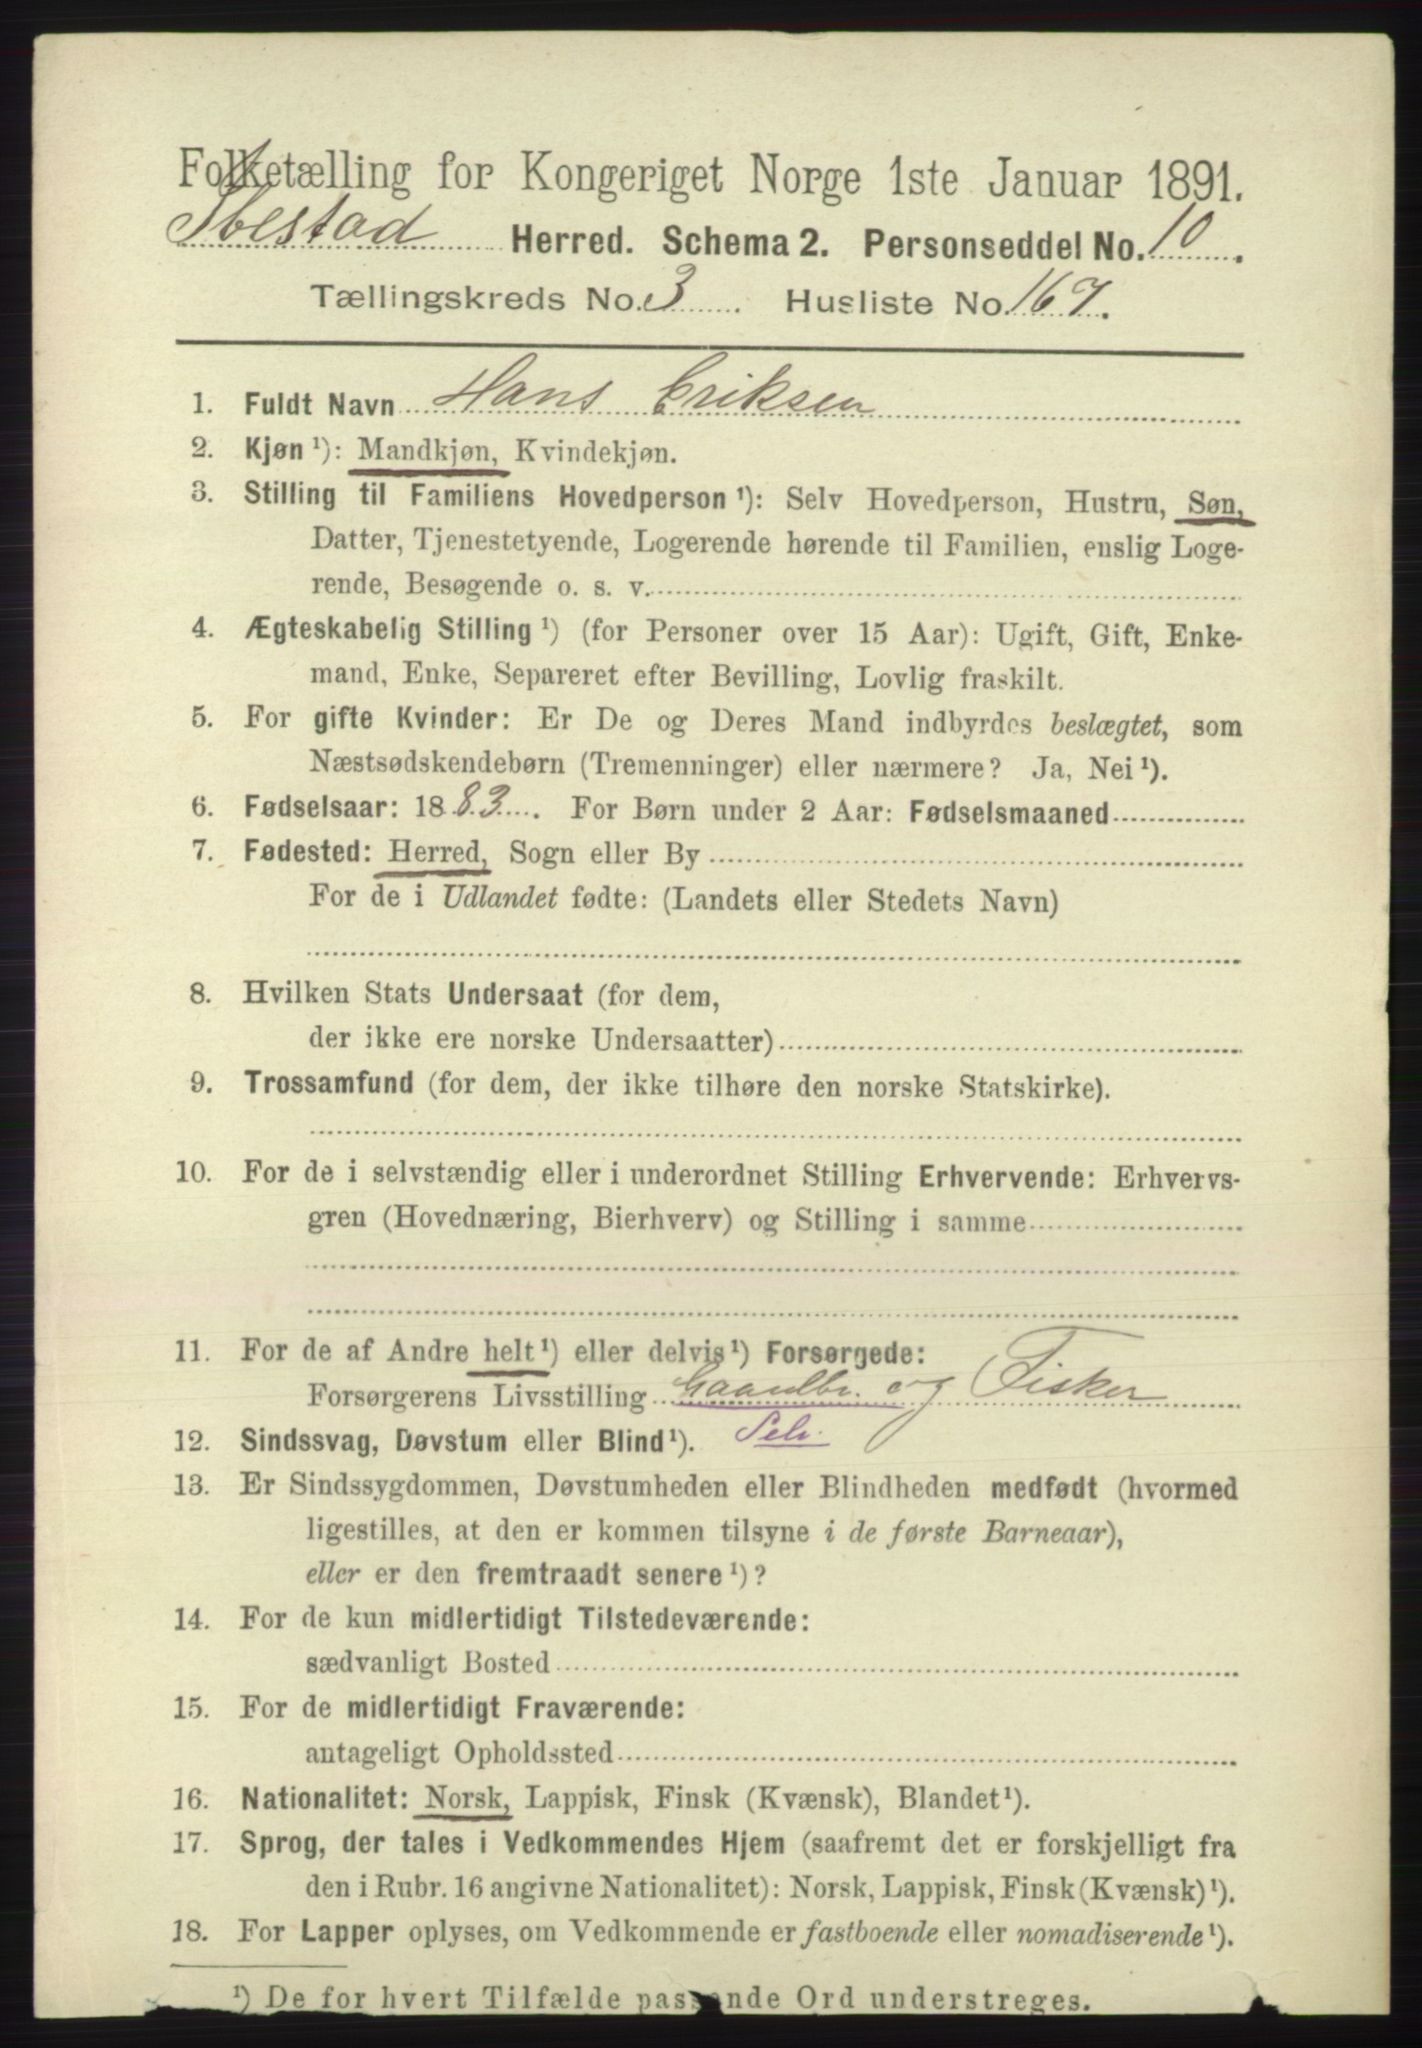 Folketælling for Kongeriget Norge 1ste Januar 1891.
Ibestad Herred. Schema 2. Personseddel No. 10.
Tællingskreds No. 3. Husliste No. 167.
1. Fuldt Navn Hans Eriksen
2. Kjøn ¹): Mandkjøn, Kvindekjøn.
3. Stilling til Familiens Hovedperson ¹): Selv Hovedperson, Hustru, Søn,
Datter, Tjenestetyende, Logerende hørende til Familien, enslig Loge-
rende, Besøgende o. s. v.
4. Ægteskabelig Stilling ¹) (for Personer over 15 Aar): Ugift, Gift, Enke-
mand, Enke, Separeret efter Bevilling, Lovlig fraskilt.
5. For gifte Kvinder: Er De og Deres Mand indbyrdes beslægtet, som
Næstsødskendebørn (Tremenninger) eller nærmere? Ja, Nei ¹).
6. Fødselsaar: 1883. For Børn under 2 Aar: Fødselsmaaned
7. Fødested: Herred, Sogn eller By
For de i Udlandet fødte: (Landets eller Stedets Navn)
8. Hvilken Stats Undersaat (for dem,
der ikke ere norske Undersaatter)
9. Trossamfund (for dem, der ikke tilhøre den norske Statskirke).
10. For de i selvstændig eller i underordnet Stilling Erhvervende: Erhvervs-
gren (Hovednæring, Bierhverv) og Stilling i samme
11. For de af Andre helt ¹) eller delvis ¹) Forsørgede:
Forsørgerens Livsstilling Gaardbr. og Fisker
12. Sindssvag, Døvstum eller Blind ¹). Selv.
13. Er Sindssygdommen, Døvstumheden eller Blindheden medfødt (hvormed
ligestilles, at den er kommen tilsyne i de første Barneaar),
eller er den fremtraadt senere ¹)?
14. For de kun midlertidigt Tilstedeværende:
sædvanligt Bosted
15. For de midlertidigt Fraværende:
antageligt Opholdssted
16. Nationalitet: Norsk, Lappisk, Finsk (Kvænsk), Blandet ¹).
17. Sprog, der tales i Vedkommendes Hjem (saafremt det er forskjelligt fra
den i Rubr. 16 angivne Nationalitet): Norsk, Lappisk, Finsk (Kvænsk) ¹).
18. For Lapper oplyses, om Vedkommende er fastboende eller nomadiserende ¹).
¹) De for hvert Tilfælde passende Ord understreges.